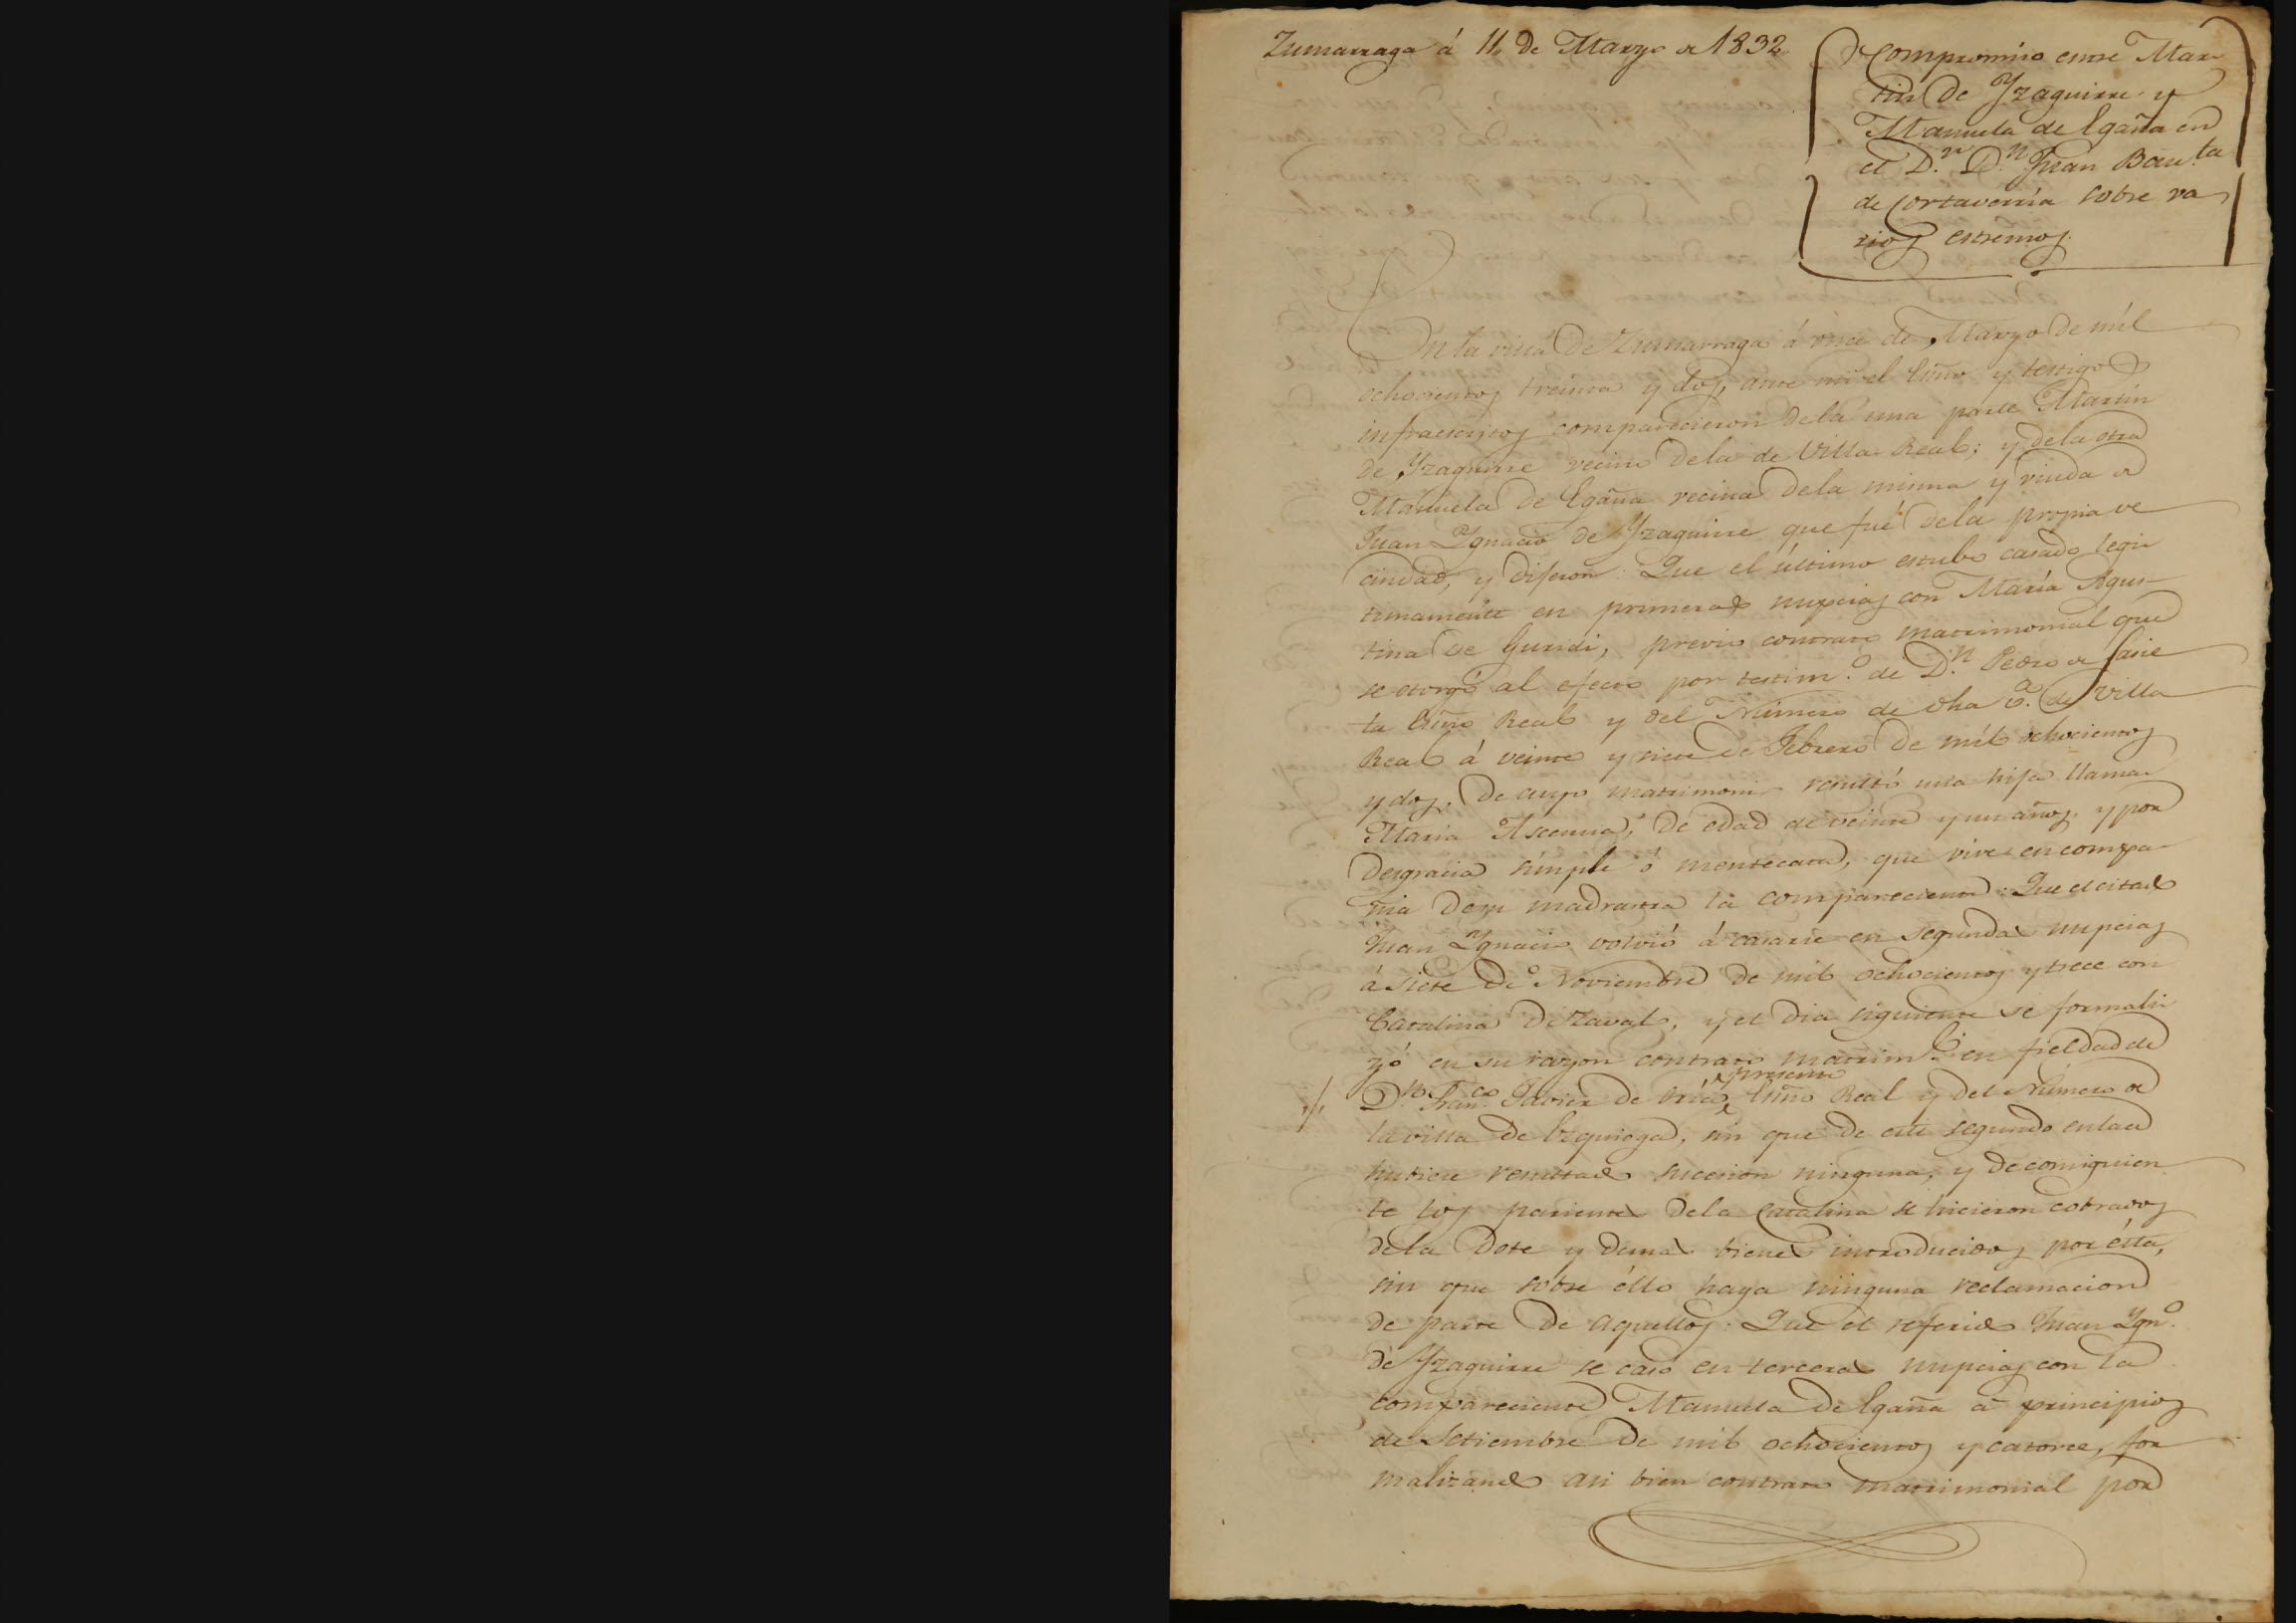 Zumarraga á 11, De Marzo de 1832
Compromiso entre Mar
tin De Yzaguirre y
Manuela de Egaña en
el D.r D.n Juan Bau.ta
de Cortaverria sobre va
rios estremos.
En la villa De Zumarraga á once de Marzo De mil
ochocientos treinta y dos, ante mi el Esño y testigos
infraescritos comparecieron dela una parte Martin
de Yzaguirre vecino dela de Villa Real; y dela otra
Manuela De Egaña vecina dela misma y viuda de
Juan Ygnacio de Yzaguirre que fué dela propia ve
cindad, y dijeron: Que el último estubo casado legi
timamente en primeras nupcias con María Agus-
tina de Guridi, previo contrato matrimonial que
se otorgó al efecto por testim.o de D.n Pedro de Sasie
ta Esño Real y del Número de dha v.a de Villa
Real á veinte y siete de Febrero De mil ochocientos
y dos, De cuyo matrimonio resultó una hija llama
Maria Ascensia, De edad de veinte y un años, y por
Desgracia simple ó mentecata, que vive en compa
ñia De su madrastra la compareciente: Que el citado
Juan Ygnacio volvió á casarse en segundas nupcias
á siete De Noviembre De mil ochocientos y trece con
Catalina De Zavalo, y el dia siguiente se formali
zó en su razon contrato matrim.l en fieldad de
presente
D.n Fran.co Javier De Oria, Esño Real y del Número de
la villa De Ezquioga, sin que De este segundo enlace
hubiese resultado sucesion ninguna, y De consiguien
te los parientes Dela Catalina se hicieron cobrados
dela Dote y Demas bienes introducidos por ésta,
sin que sobre éllo haya ninguna reclamacion
de parte De aquellos: Que el referido Juan Ygn.o
de Yzaguirre se casó en terceras nupcias con la
compareciente Manuela De Egaña á principios
de Setiembre De mil ochocientos y catorce, for
malizando asi bien contrato matrimonial por